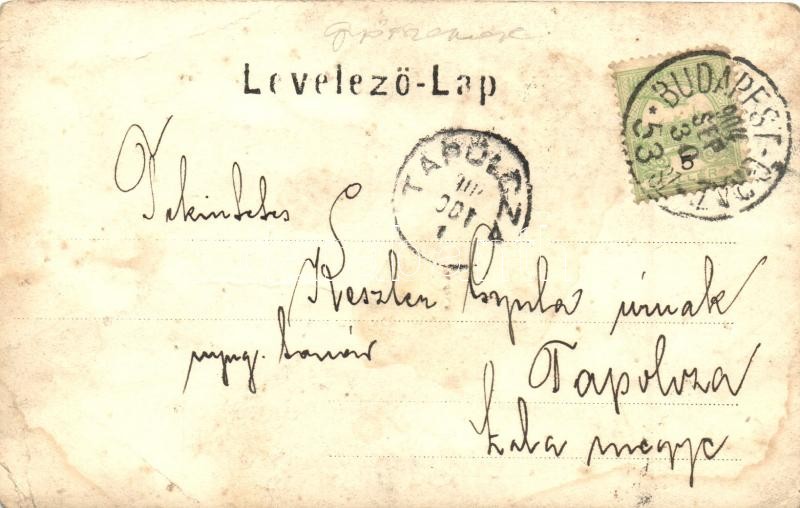 Levelező-Lap
BUDAPEST
SEP
30
*53
TAPOLCZA
OCT
1
Tekintetes
Keszler Gyula úrnak
nyug. tanár
Tapolcza
Zala megye